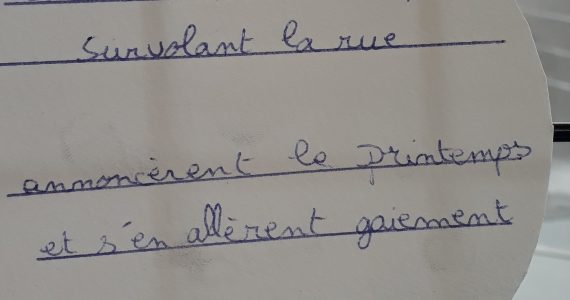 survolant la rue
annoncèrent le printemps
et s'en allèrent gaiement